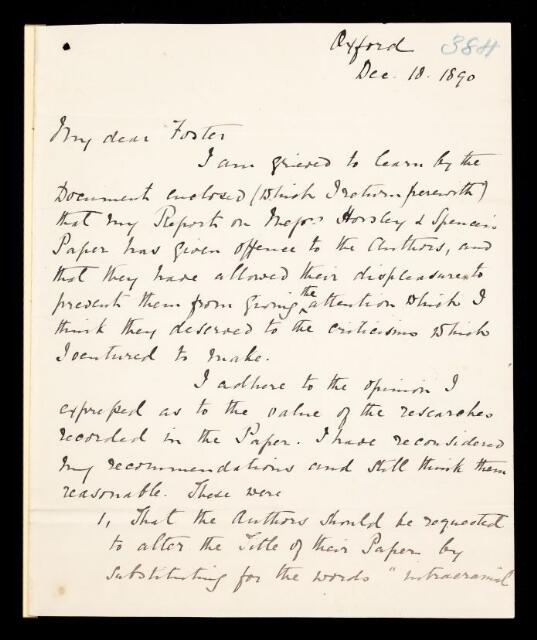 Oxford 384
Dec. 10. 1890
My dear Foster
I am grieved to learn by the
Document enclosed (which I return herewith)
that my Report on Messrs Horsley & Spencer's
Paper has given offence to the Authors, and
that they have allowed their displeasure to
prevent them from giving the attention which I
think they deserved to the criticisms which
I ventured to make.
I adhere to the opinion I
expressed as to the value of the researches
recorded in the Paper. I have reconsidered
my recommendations and still think them
reasonable. These were
1, That the Authors should be requested
to alter the Title of their Paper by
substituting for the words "intracranial